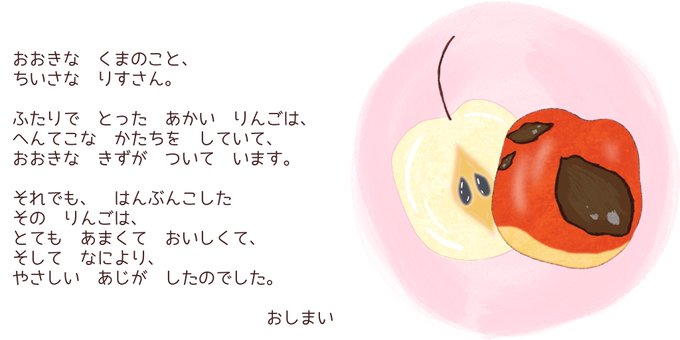 おおきな　くまのこと、
ちいさな　りすさん。
ふたりで　とった　あかい　りんごは、
へんてこな　かたちを　していて、
おおきな　きずが　ついて　います。
それでも、　はんぶんこした
その　りんごは、
とても　あまくて　おいしくて、
そして　なにより、
やさしい　あじが　したのでした。
おしまい